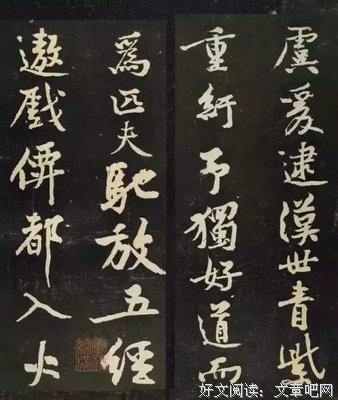 虞爰逮漢世青紫
重紆予獨好道而
爲匹夫馳放五經
遨戲僊都入火
好文阅读：文章吧网